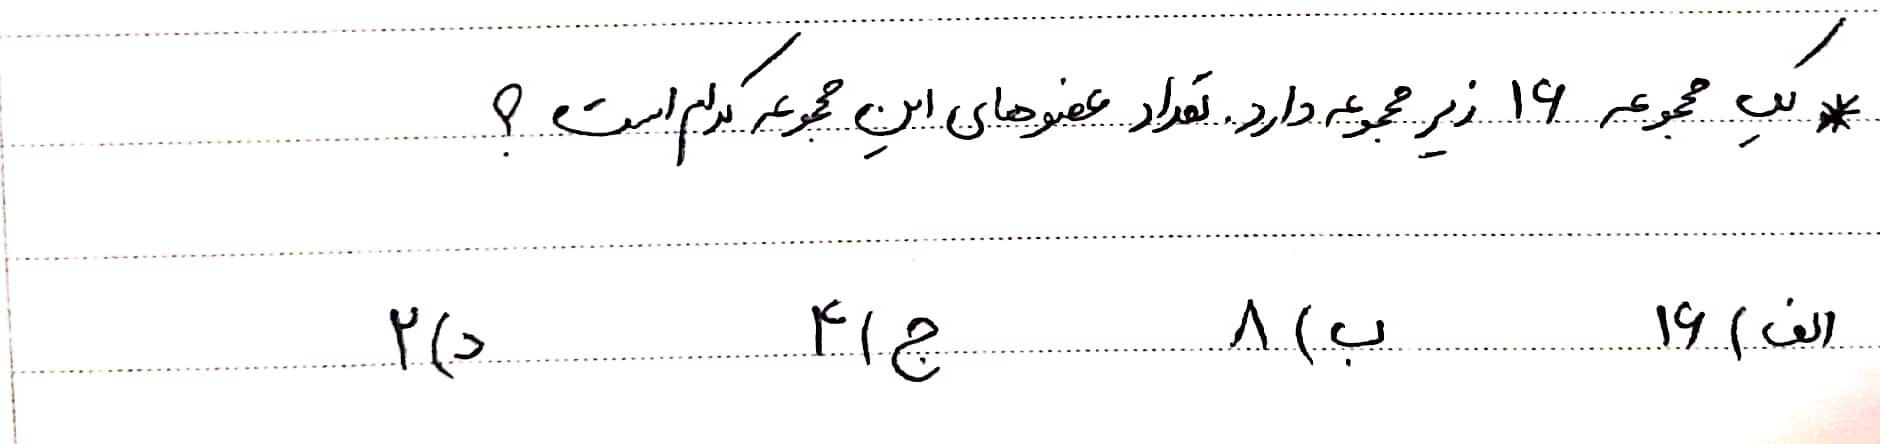 * یک مجموعه ۱۶ زیر مجموعه دارد. تعداد عضوهای این مجموعه کدام است ؟
الف) ۱۶ ب) ۸ ج) ۴ د) ۲